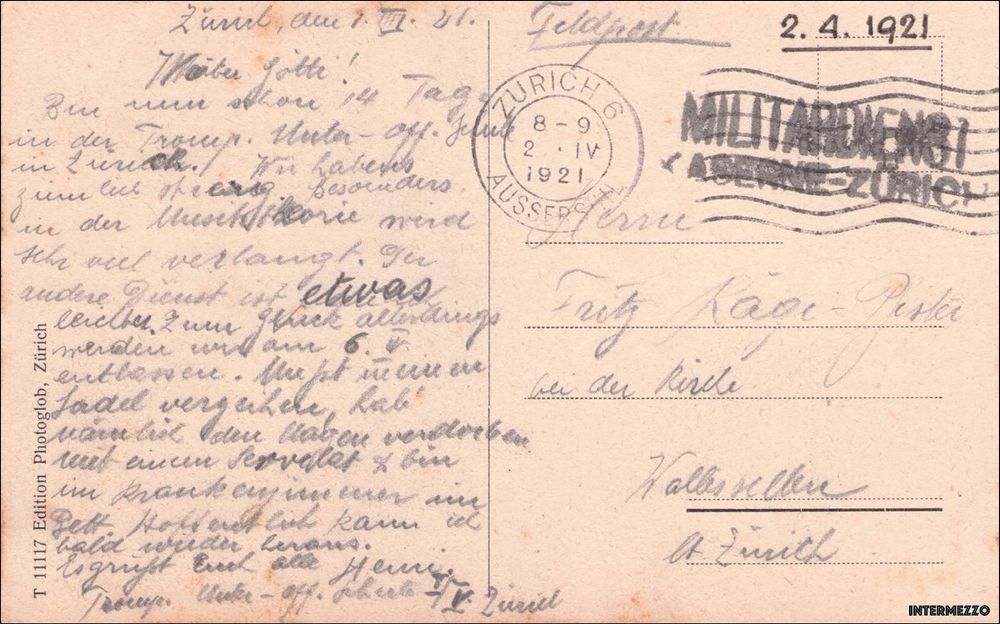 Zürich, den 1. IV. 21.
Götti!
Bin nun schon 14 Tage
in der Tromp. Unter-off. Schule
in Zürich. Wir haben's
zieml streng, besonders
in der Musiktheorie wird
sehr viel verlangt. Der
andere Dienst ist etwas
leichter. Zum Glück allerdings
werden wir am 6. V.
entlassen. Müsst meinen
Sadel verzeihen, hab'
nämlich den Magen verdorben
mit einem Servelat & bin
im Krankenzimmer im
Bett. Hoffentlich kann ich
bald wieder heraus.
Es grüsst Euch alle Heini.
Tromp. Unter-off. Schule V Zürich
T 11117 Edition Photoglob, Zürich
Feldpost
2. 4. 1921
ZÜRICH 6
8-9
2. IV
1921
AUSSERSIHL
MILITÄRDIENST
KASERNE-ZÜRICH
Herrn
Fritz Kägi-Pfister
bei der Kirche
Wallisellen
Ct. Zürich
INTERMEZZO